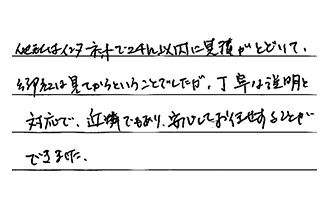 他社はインタネットで24h以内に見積がとどいて、
御社は見てからということでしたが、丁寧な説明と
対応で、近隣でもあり、安心してお任せすることが
できました。